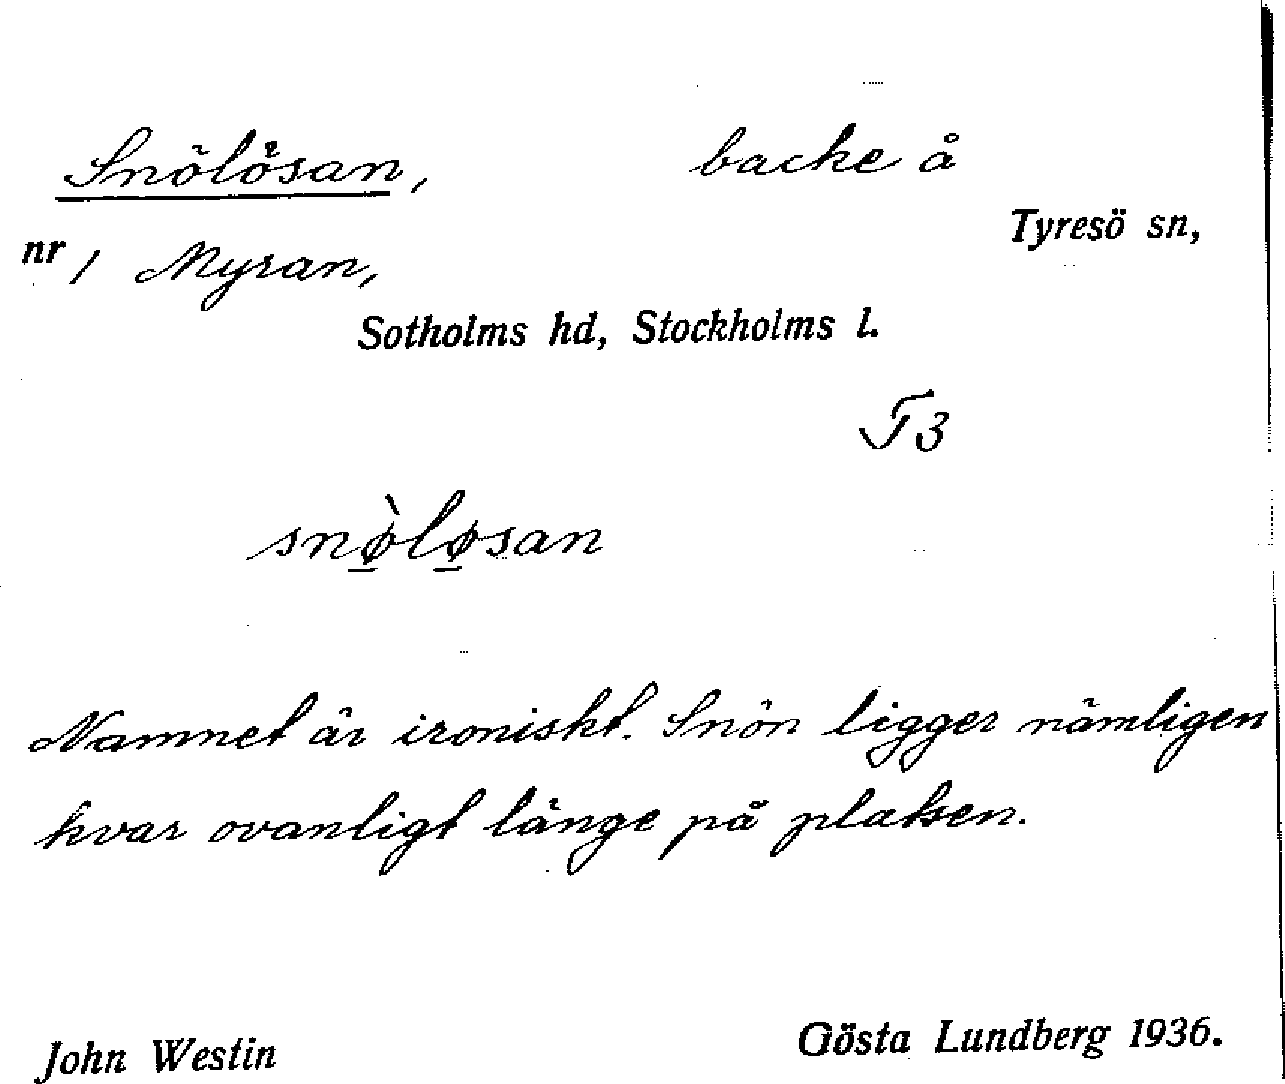 Snölösan, backe å
Tyresö sn,
nr 1 Myran,
Sotholms hd, Stockholms l.
T3
snø�lø̀san
Namnet är ironiskt. Snön ligger nämligen
kvar ovanligt länge på platsen.
John Westin Gösta Lundberg 1936.